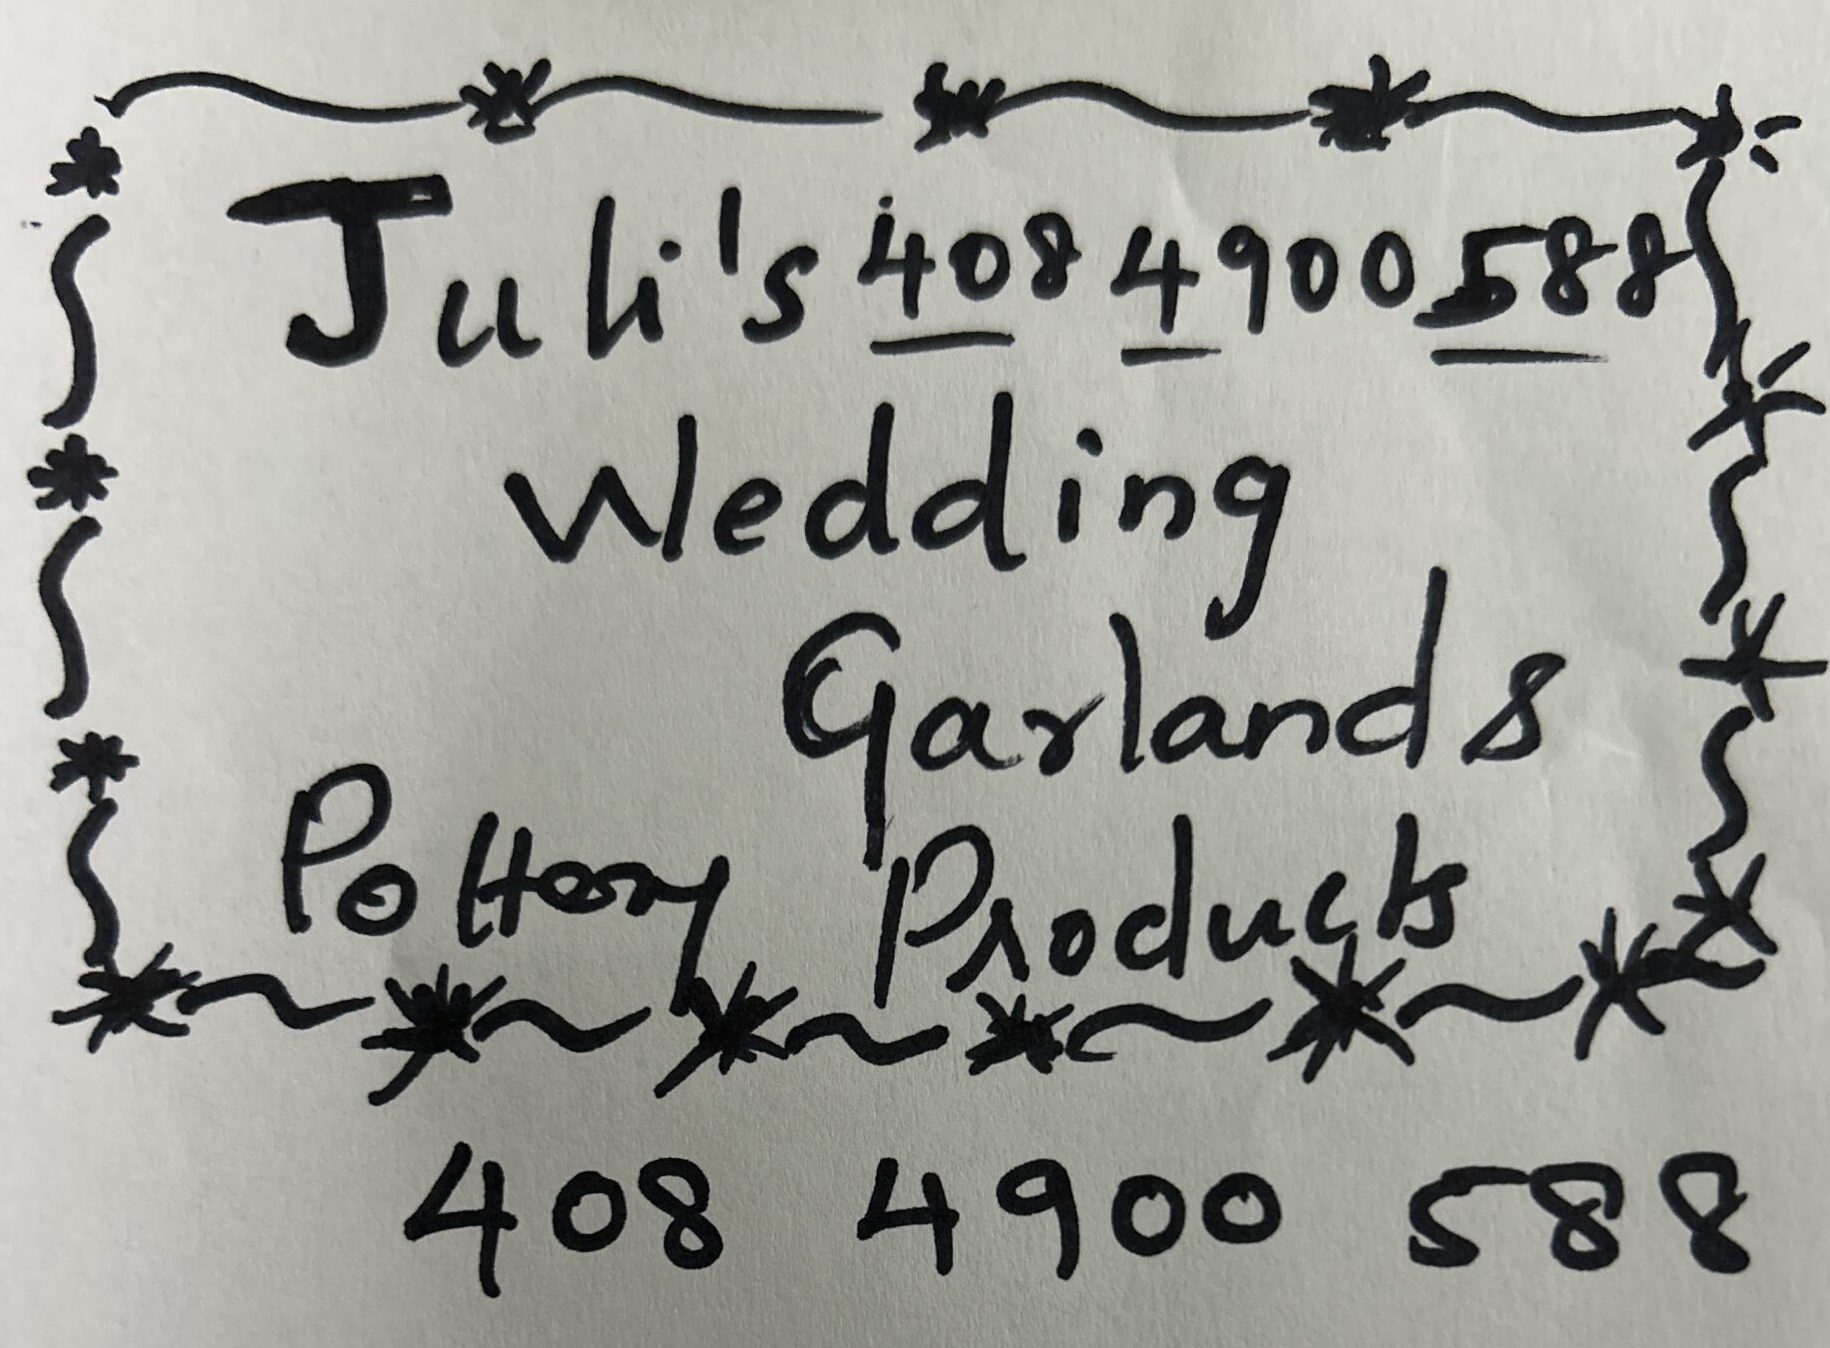 Juli's 408 4900 588
Wedding
Garlands
Pottery Products
408 4900 588